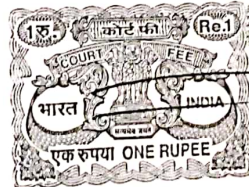 1रु. कोर्ट फी Re.1
COURT FEE
भारत INDIA
सत्यमेव जयते
एक रुपया ONE RUPEE